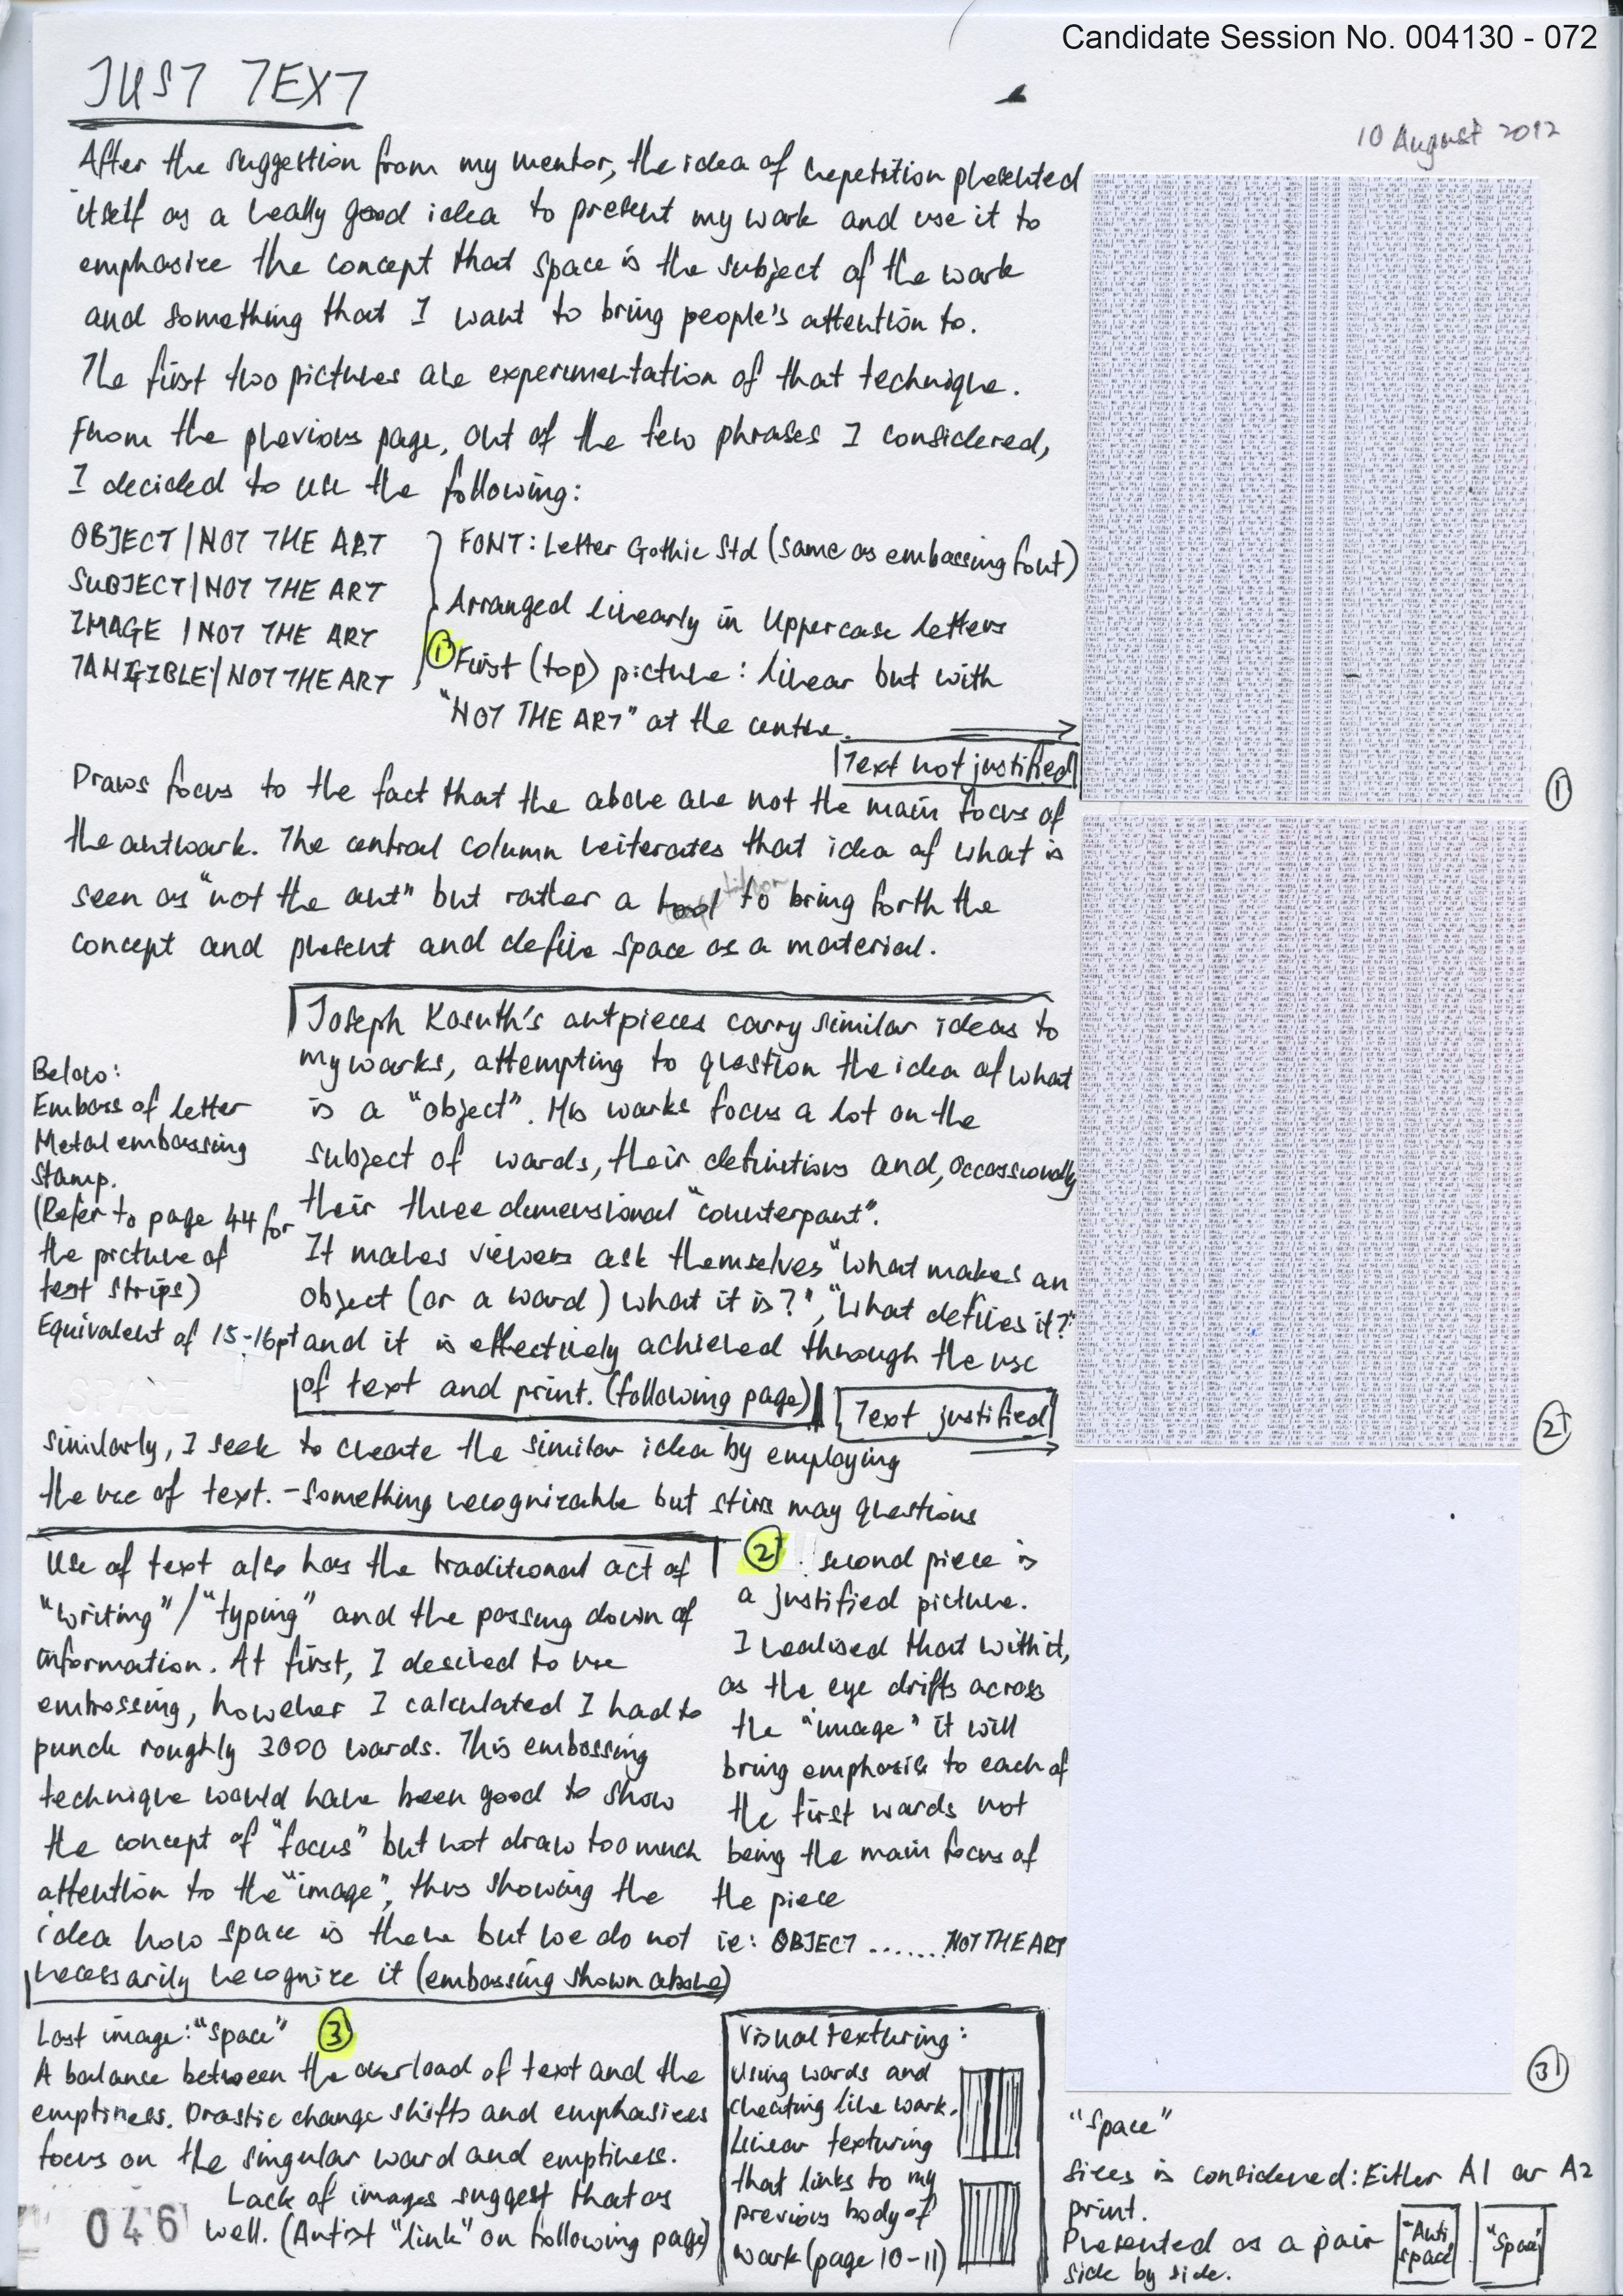 Candidate Session No. 004130 - 072
JUST TEXT
10 August 2012
After the suggestion from my mentor, the idea of repetition presented
itself as a really good idea to present my work and use it to
emphasize the concept that space is the subject of the work
and something that I want to bring people's attention to.
The first two pictures are experimentation of that technique.
From the previous page, out of the few phrases I considered,
I decided to use the following:
OBJECT | NOT THE ART
SUBJECT | NOT THE ART
IMAGE | NOT THE ART
TANGIBLE | NOT THE ART
FONT: Letter Gothic Std (same as embossing font)
Arranged linearly in Uppercase letters
① First (top) picture: linear but with
"NOT THE ART" at the centre.
Text not justified
①
Draws focus to the fact that the above are not the main focus of
the artwork. The central column reiterates that idea of what is
seen as "not the art" but rather a tool to bring forth the
concept and present and define space as a material.
Joseph Kosuth's artpieces carry similar ideas to
my works, attempting to question the idea of what
is a "object". His works focus a lot on the
subject of words, their definitions and, occassionally
their three dimensional "counterpart".
It makes viewers ask themselves "what makes an
object (or a word) what it is?", "What defines it?"
and it is effectively achieved through the use
of text and print. (following page)
Below:
Emboss of letter
Metal embossing
stamp.
(Refer to page 44 for
the picture of
test strips)
Equivalent of 15-16pt
SPACE
Text justified
②
similarly, I seek to create the similar idea by employing
the use of text. - something recognizable but stirs may questions
Use of text also has the traditional act of
"writing" / "typing" and the passing down of
information. At first, I desired to use
embossing, however I calculated I had to
punch roughly 3000 words. This embossing
technique would have been good to show
the concept of "focus" but not draw too much
attention to the "image", thus showing the
idea how space is there but we do not
necessarily recognize it (embossing shown above)
② : second piece is
a justified picture.
I realised that with it,
as the eye drifts across
the "image" it will
bring emphasis to each of
the first words not
being the main focus of
the piece
ie: OBJECT ....... NOT THE ART
Last image: "space" ③
A balance between the overload of text and the
emptiness. Drastic change shifts and emphasizes
focus on the singular word and emptiness.
Lack of images suggest that as
well. (Artist "link" on following page)
046
Visual texturing:
Using words and
creating line work.
Linear texturing
that links to my
previous body of
work (page 10-11)
③
"Space"
Sizes is considered: Either A1 or A2
print.
Presented as a pair
side by side.
"Anti
space"
"Space"